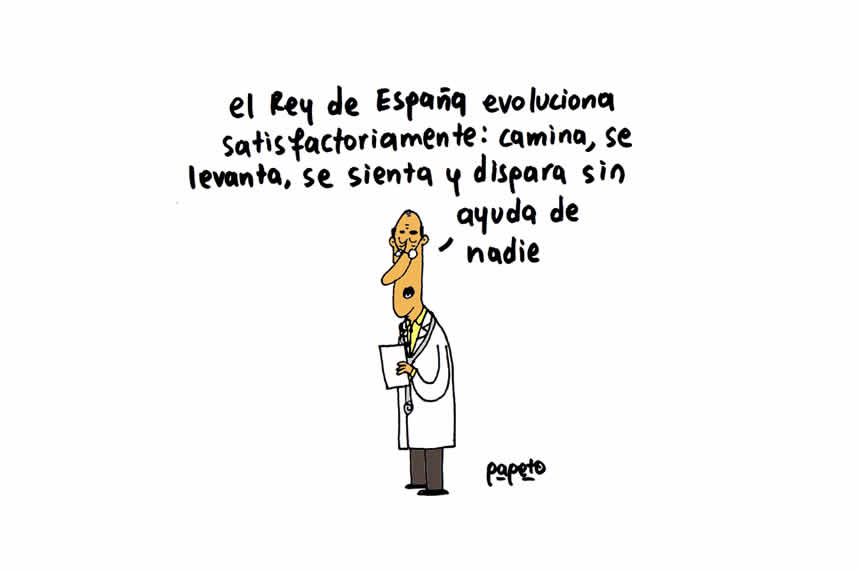 el Rey de España evoluciona
satisfactoriamente: camina, se
levanta, se sienta y dispara sin
ayuda de
nadie
papeto